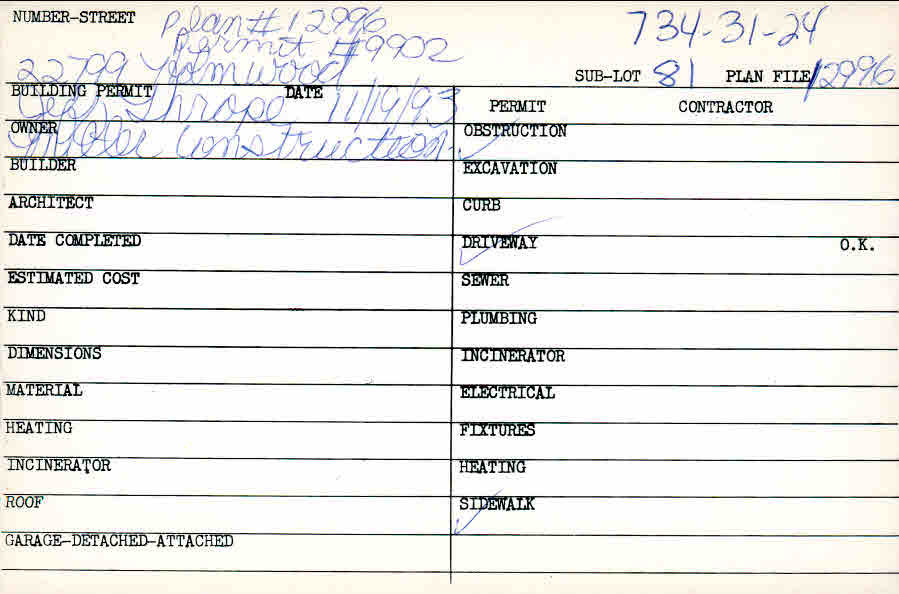 NUMBER-STREET Plan # 12996 734-31-24
Permit #9902
22799 SUB-LOT 81 PLAN FILE 12996
BUILDING PERMIT DATE 11/19/93 PERMIT CONTRACTOR
OWNER Construction OBSTRUCTION
BUILDER EXCAVATION
ARCHITECT CURB
DATE COMPLETED DRIVEWAY O.K.
ESTIMATED COST SEWER
KIND PLUMBING
DIMENSIONS INCINERATOR
MATERIAL ELECTRICAL
HEATING FIXTURES
INCINERATOR HEATING
ROOF SIDEWALK
GARAGE-DETACHED-ATTACHED